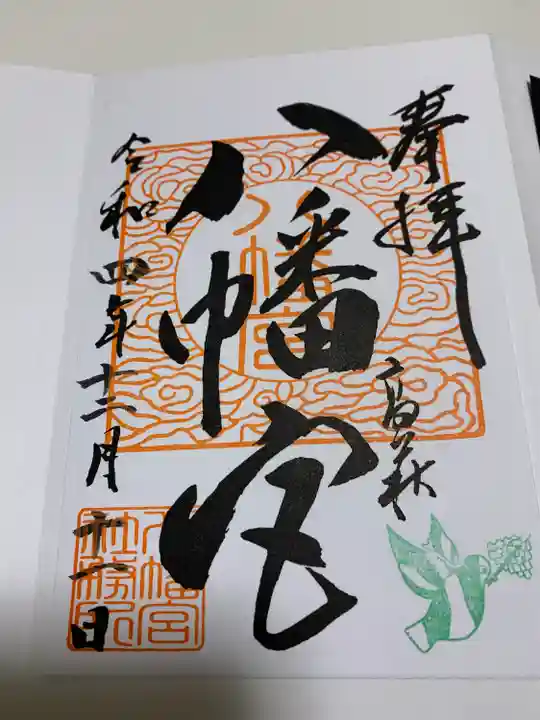 奉拝
高萩
八幡宮
八幡宮
令和四年十二月卅一日
八幡宮
社務所